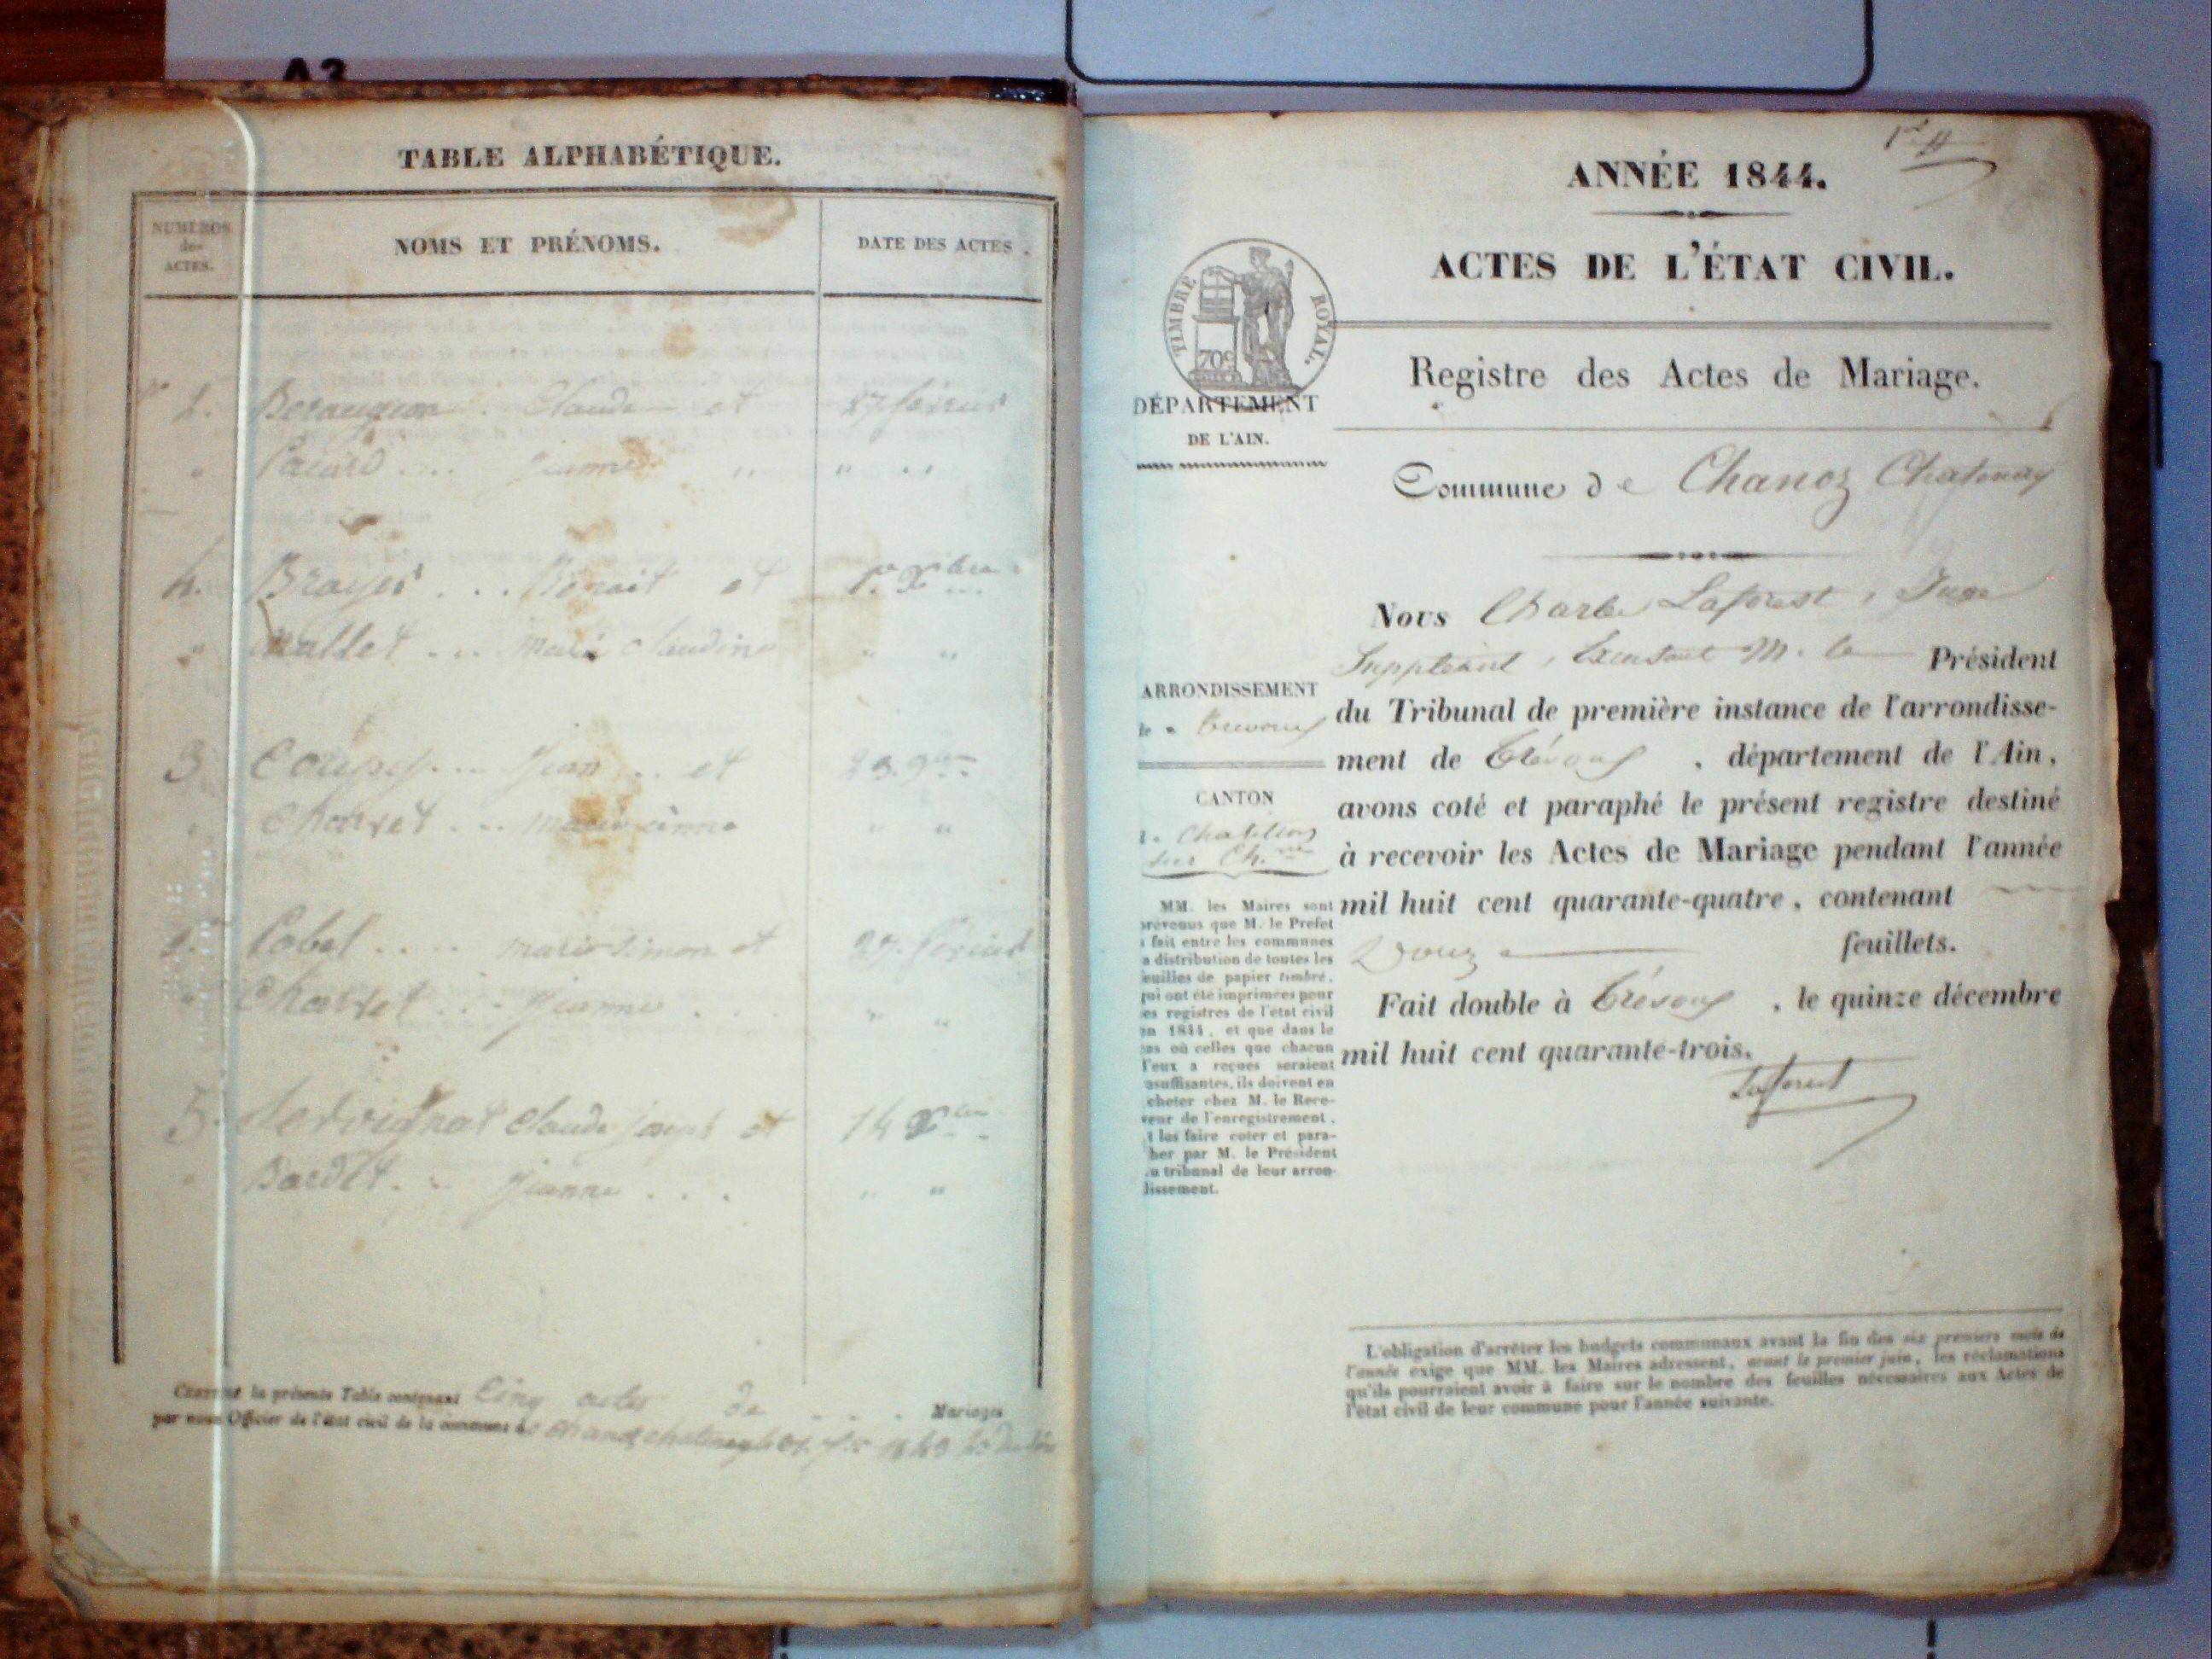 A3
TABLE ALPHABÉTIQUE.
NUMÉROS
des
ACTES.
NOMS ET PRÉNOMS.
DATE DES ACTES.
2. Claude et 27 février
" Jeanne " "
4. Broyer ... Benoit et 1er Xbre
" Mallet ... Marie Claudine " "
3 Jean .. et 23 9bre
Charvet ... " "
1. Cobel .... et 27 février
" Charvet ... Jeanne ... " "
5. Claude Joseph et 14 Xbre
" Bardet ... Jeanne ... " "
Certifié la présente Table contenant Cinq actes de Mariages
par nous Officier de l'état civil de la commune de Chanoz Chatenay
1er
ANNÉE 1844.
ACTES DE L'ÉTAT CIVIL.
TIMBRE ROYAL.
70c
DÉPARTEMENT
DE L'AIN.
Registre des Actes de Mariage.
Commune de Chanoz Chatenay
Nous Charles Laforest, Juge
Suppléant, M. le Président
du Tribunal de première instance de l'arrondisse-
ment de Trévoux, département de l'Ain,
avons coté et paraphé le présent registre destiné
à recevoir les Actes de Mariage pendant l'année
mil huit cent quarante-quatre, contenant
Douze feuillets.
Fait double à Trévoux, le quinze décembre
mil huit cent quarante-trois.
Laforest
ARRONDISSEMENT
de Trévoux
CANTON
Chatillon
sur Ch.ne
MM. les Maires sont
prévenus que M. le Préfet
a fait entre les communes
la distribution de toutes les
feuilles de papier timbré,
qui ont été imprimées pour
les registres de l'état civil
en 1844, et que dans le
cas où celles que chacun
d'eux a reçues seraient
insuffisantes, ils doivent en
acheter chez M. le Rece-
veur de l'enregistrement,
et les faire coter et para-
pher par M. le Président
du tribunal de leur arron-
dissement.
L'obligation d'arrêter les budgets communaux avant la fin des six premiers mois de
l'année exige que MM. les Maires adressent, avant le premier juin, les réclamations
qu'ils pourraient avoir à faire sur le nombre des feuilles nécessaires aux Actes de
l'état civil de leur commune pour l'année suivante.